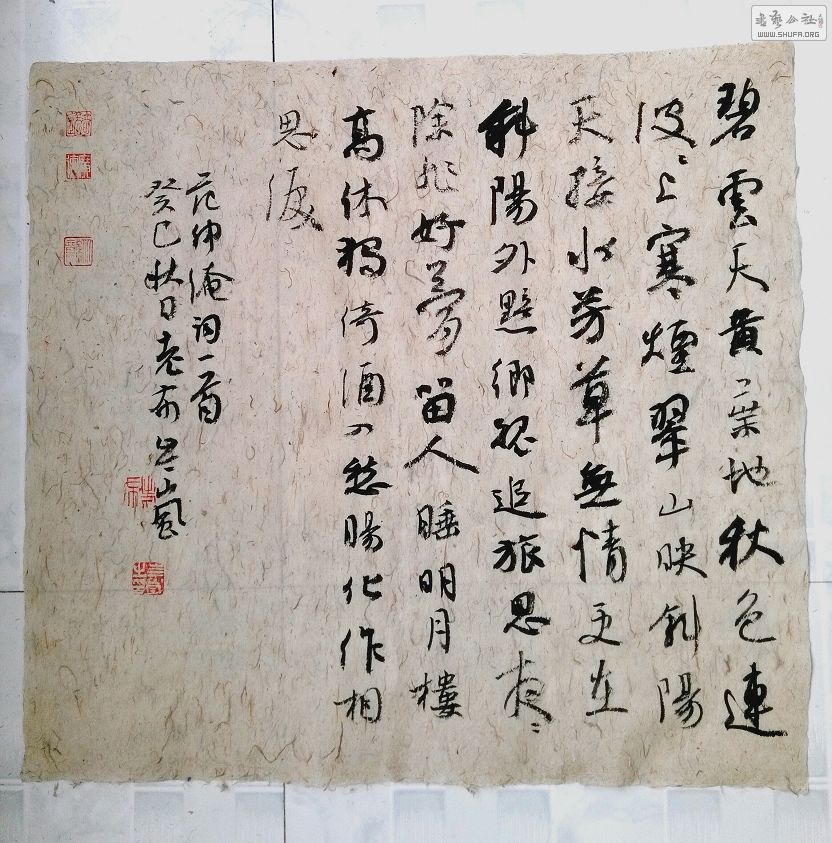 碧雲天黃葉地秋色連
波〻上寒煙翠山映斜陽
天接水芳草無情更在
斜陽外黯鄉魂追旅思夜〻
除非好夢留人睡明月樓
高休獨倚酒入愁腸化作相
思淚
范仲淹詞一首
癸巳秋日老布嵐
書藝公社
WWW.SHUFA.ORG